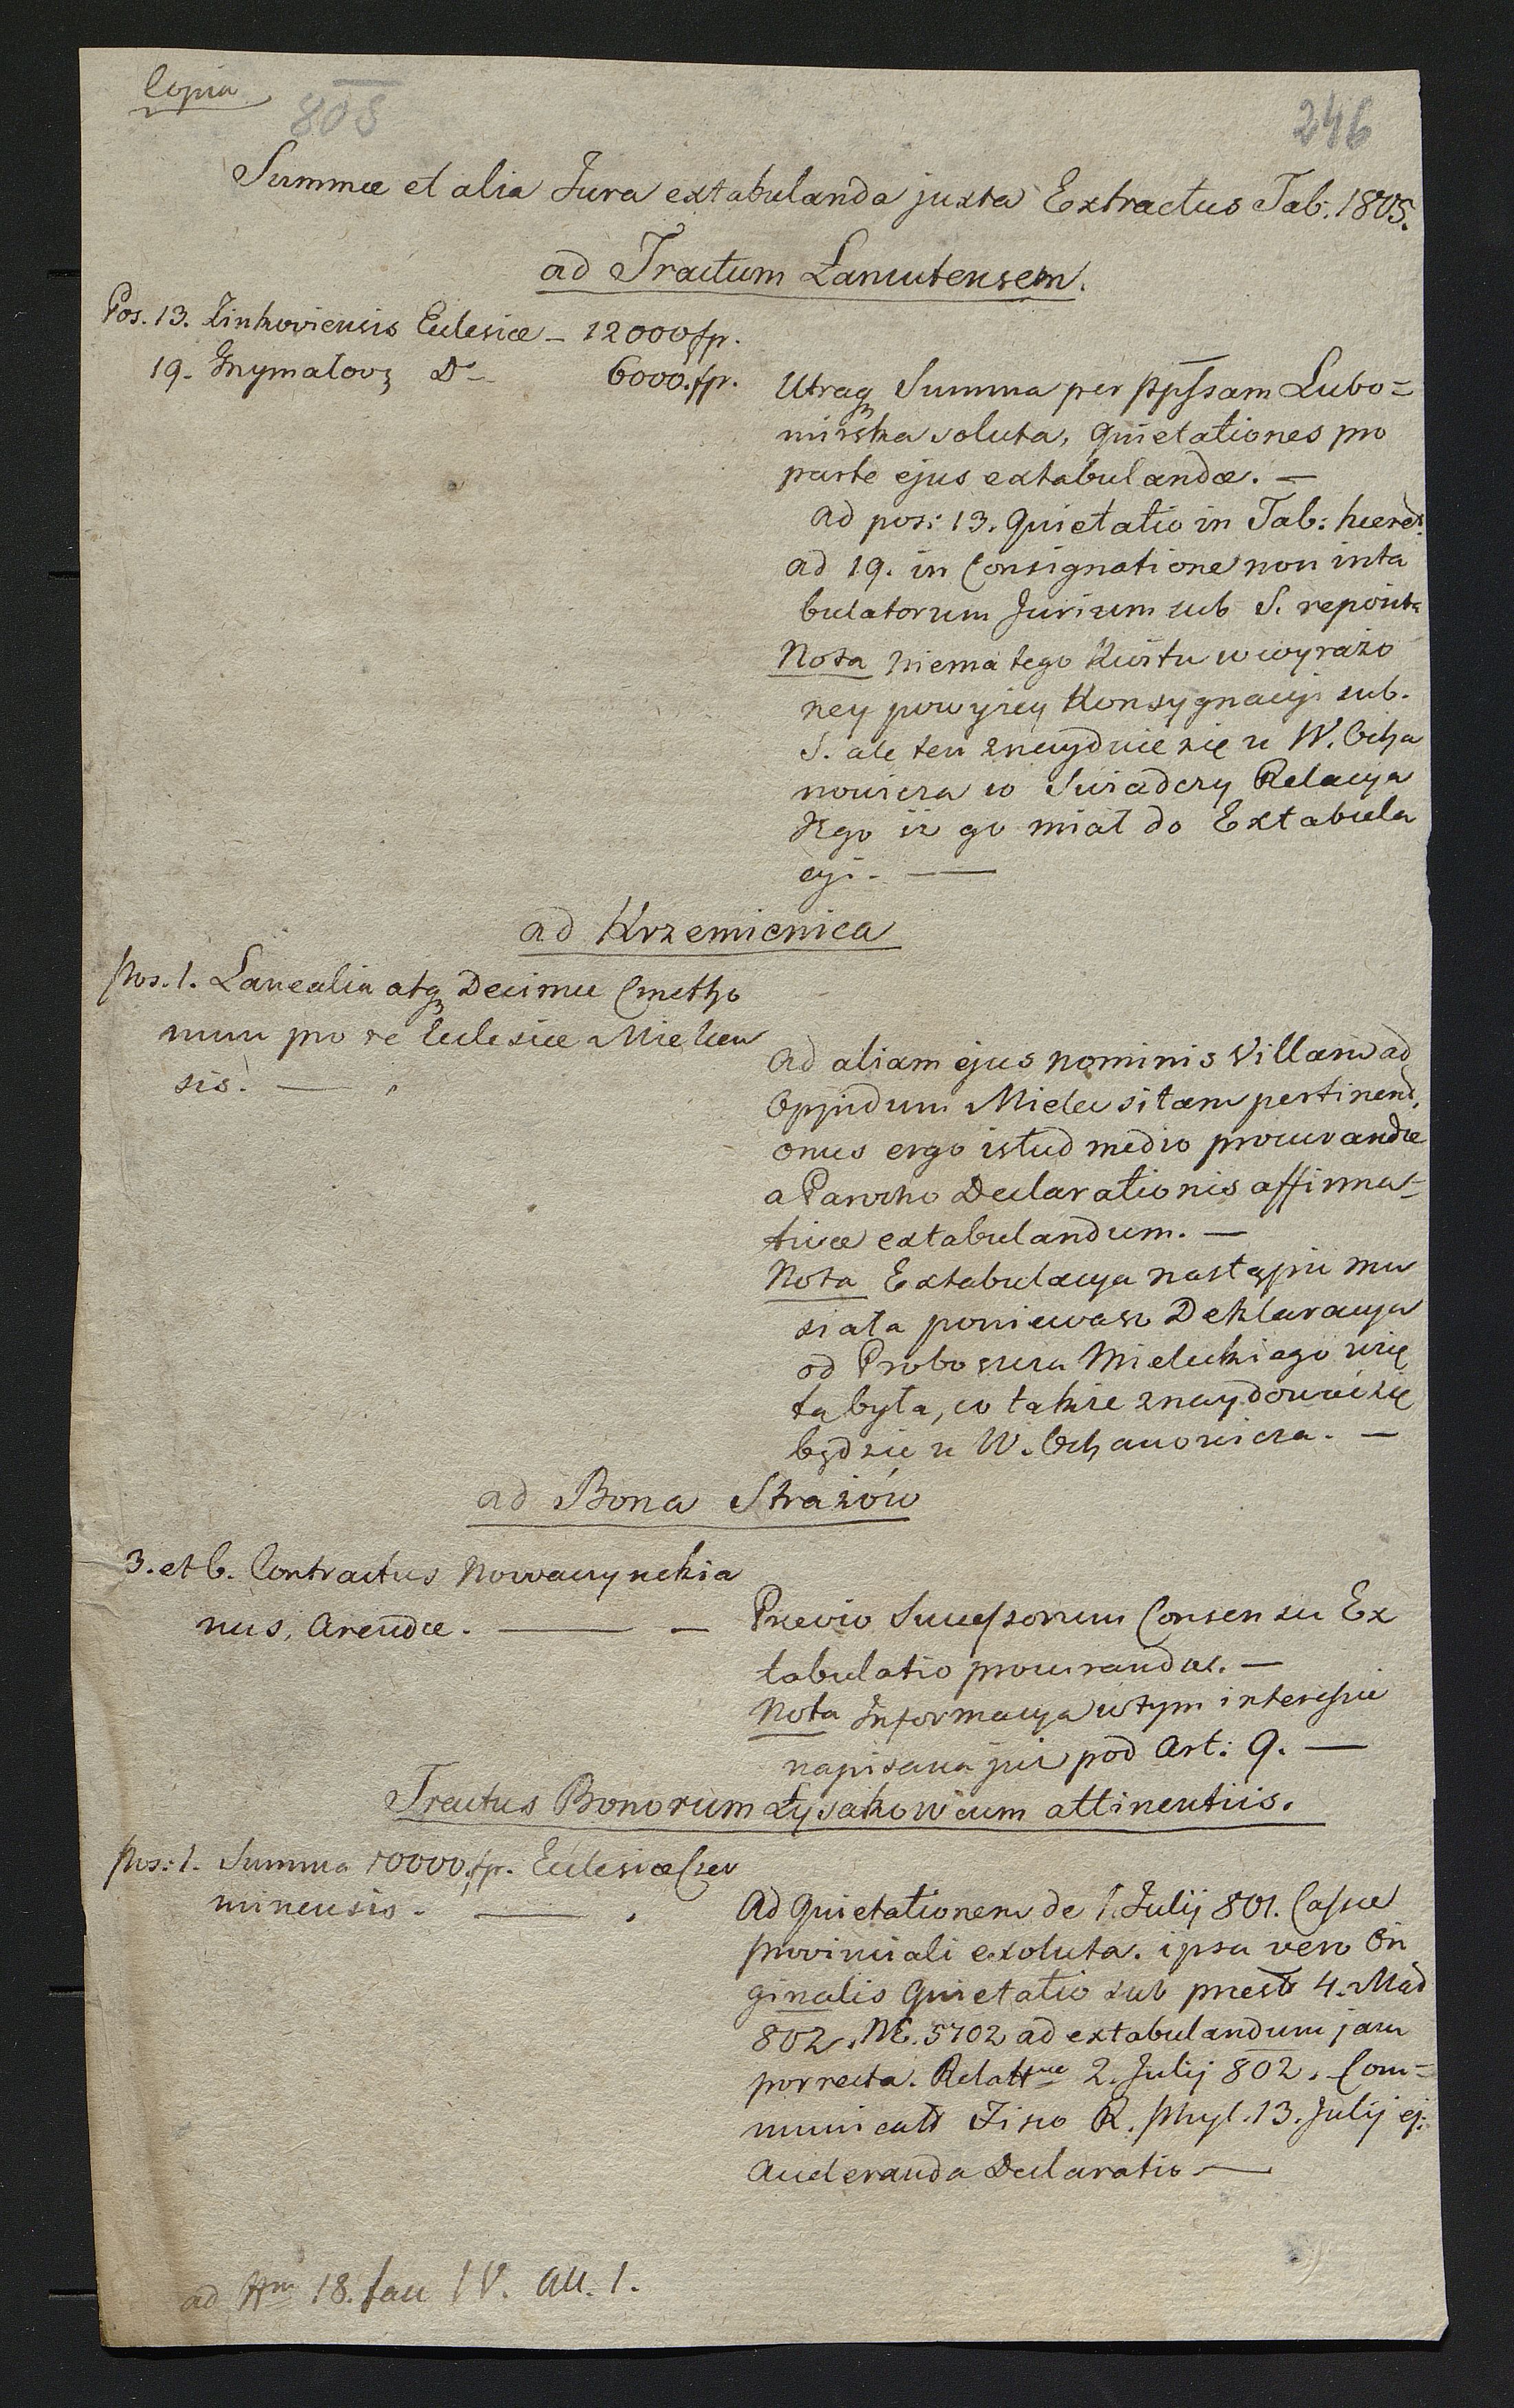 Copia
808
246
Summæ et alia Jura extabulanda juxta Extractus Tab. 1805.
ad Tractum Łancutensem.
Pos. 13. Zinkoviensis Eclesiæ – 12000 fp.
19. Grzymałov D – 6000. fp.
Utraq Summa per Ppssam Lubo=
mirska soluta, Quietationes pro
parte ejus extabulandæ. —
Ad pos: 13. Quietatio in Tab: hæred.
ad 19. in Consignatione non inta
bulatorum Jurium sub S. reposita
Nota Niema tego Kwitu w wyrażo
ney powyżey Konsygnacyi sub.
S. ale ten znayduie się u W. Ocha
nowicza co Swiadczy Relacya
Jego iż go miał do Extabula
cyi. —
ad Krzemienica
Pos. 1. Lanealia atq Decimæ Cmetho
num pro re Eclesiæ Mielcen
sis. —
Ad aliam ejus nominis Villam ad
Oppidum Mielec sitam pertinend,
onus ergo istud medio procurandæ
a Parocho Declarationis affirma=
tivæ extabulandum. —
Nota Extabulacya nastąpić mu
siała poniewasz Deklaracya
od Proboszcza Mieleckiego wzię
ta była, co także znaydować się
będzie u W. Ochanowicza. —
ad Bona Strażów
3. et 6. Contractus Nowaczynskia
nus, Arendæ. — —
Prævio Successorum Consensu Ex
tabulatio procuranda. —
Nota Informacya w tym interessie
napisana już pod Art: 9. —
Tractus Bonorum Łysakow cum attinentiis.
Pos: 1. Summa 10000 fp. Eclesiæ Czer
minensis. —
Ad Quietationem de 1. Julij 801. Cassæ
provinciali exoluta. ipsa vero Ori
ginalis Quietatio sub præst 4. Mad
802. NE. 5702 ad extabulandum jam
porrecta. Relattne 2. Julij 802. Com=
municatt Fisco R. phyl. 13. Julij ej:
Acceleranda Declaratio —
ad Hm 18. fau IV. All. 1.